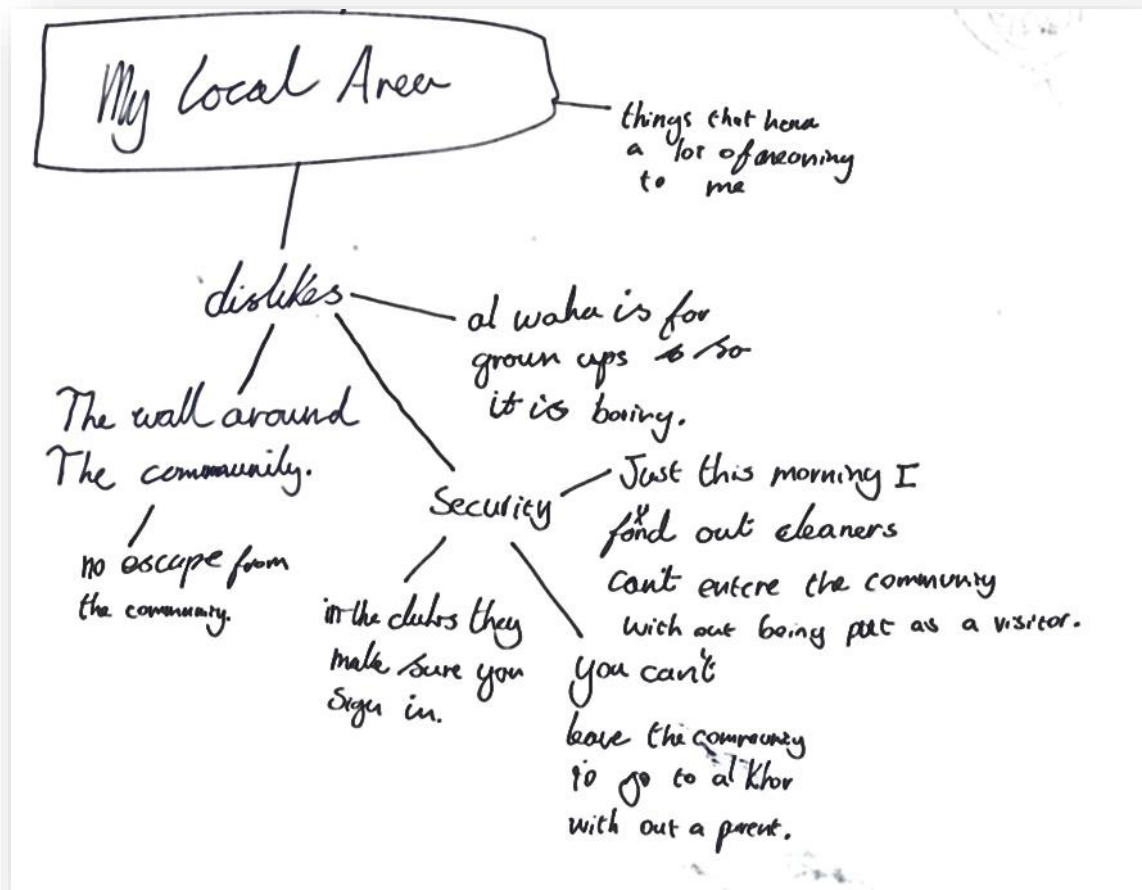 My Local Area
things that have
a lot of meaning
to me
dislikes
al waha is for
grown ups so
it is boring.
The wall around
The community.
no escape from
the community.
Security
Just this morning I
fond out cleaners
can't entere the community
with out being put as a visitor.
in the clubs they
make sure you
sign in.
you can't
leave the community
to go to al Khor
with out a parent.